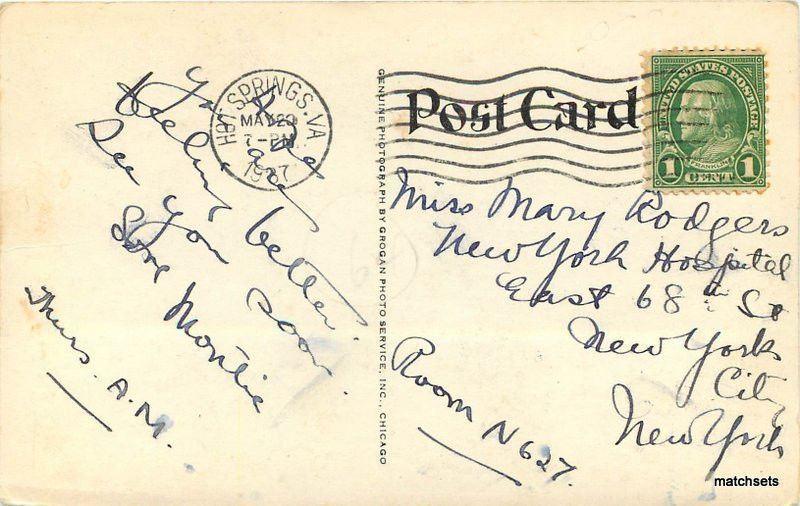 HOT SPRINGS. VA
MAY 20
7-PM
1937
Post Card
UNITED STATES POSTAGE
FRANKLIN
1 CENT 1
feeling better.
See you soon.
Love Montie
Thurs. A.M.
GENUINE PHOTOGRAPH BY GROGAN PHOTO SERVICE, INC., CHICAGO
Miss Mary Rodgers
New York Hospital
East 68th St
New York
City
New York
Room N 627.
matchsets